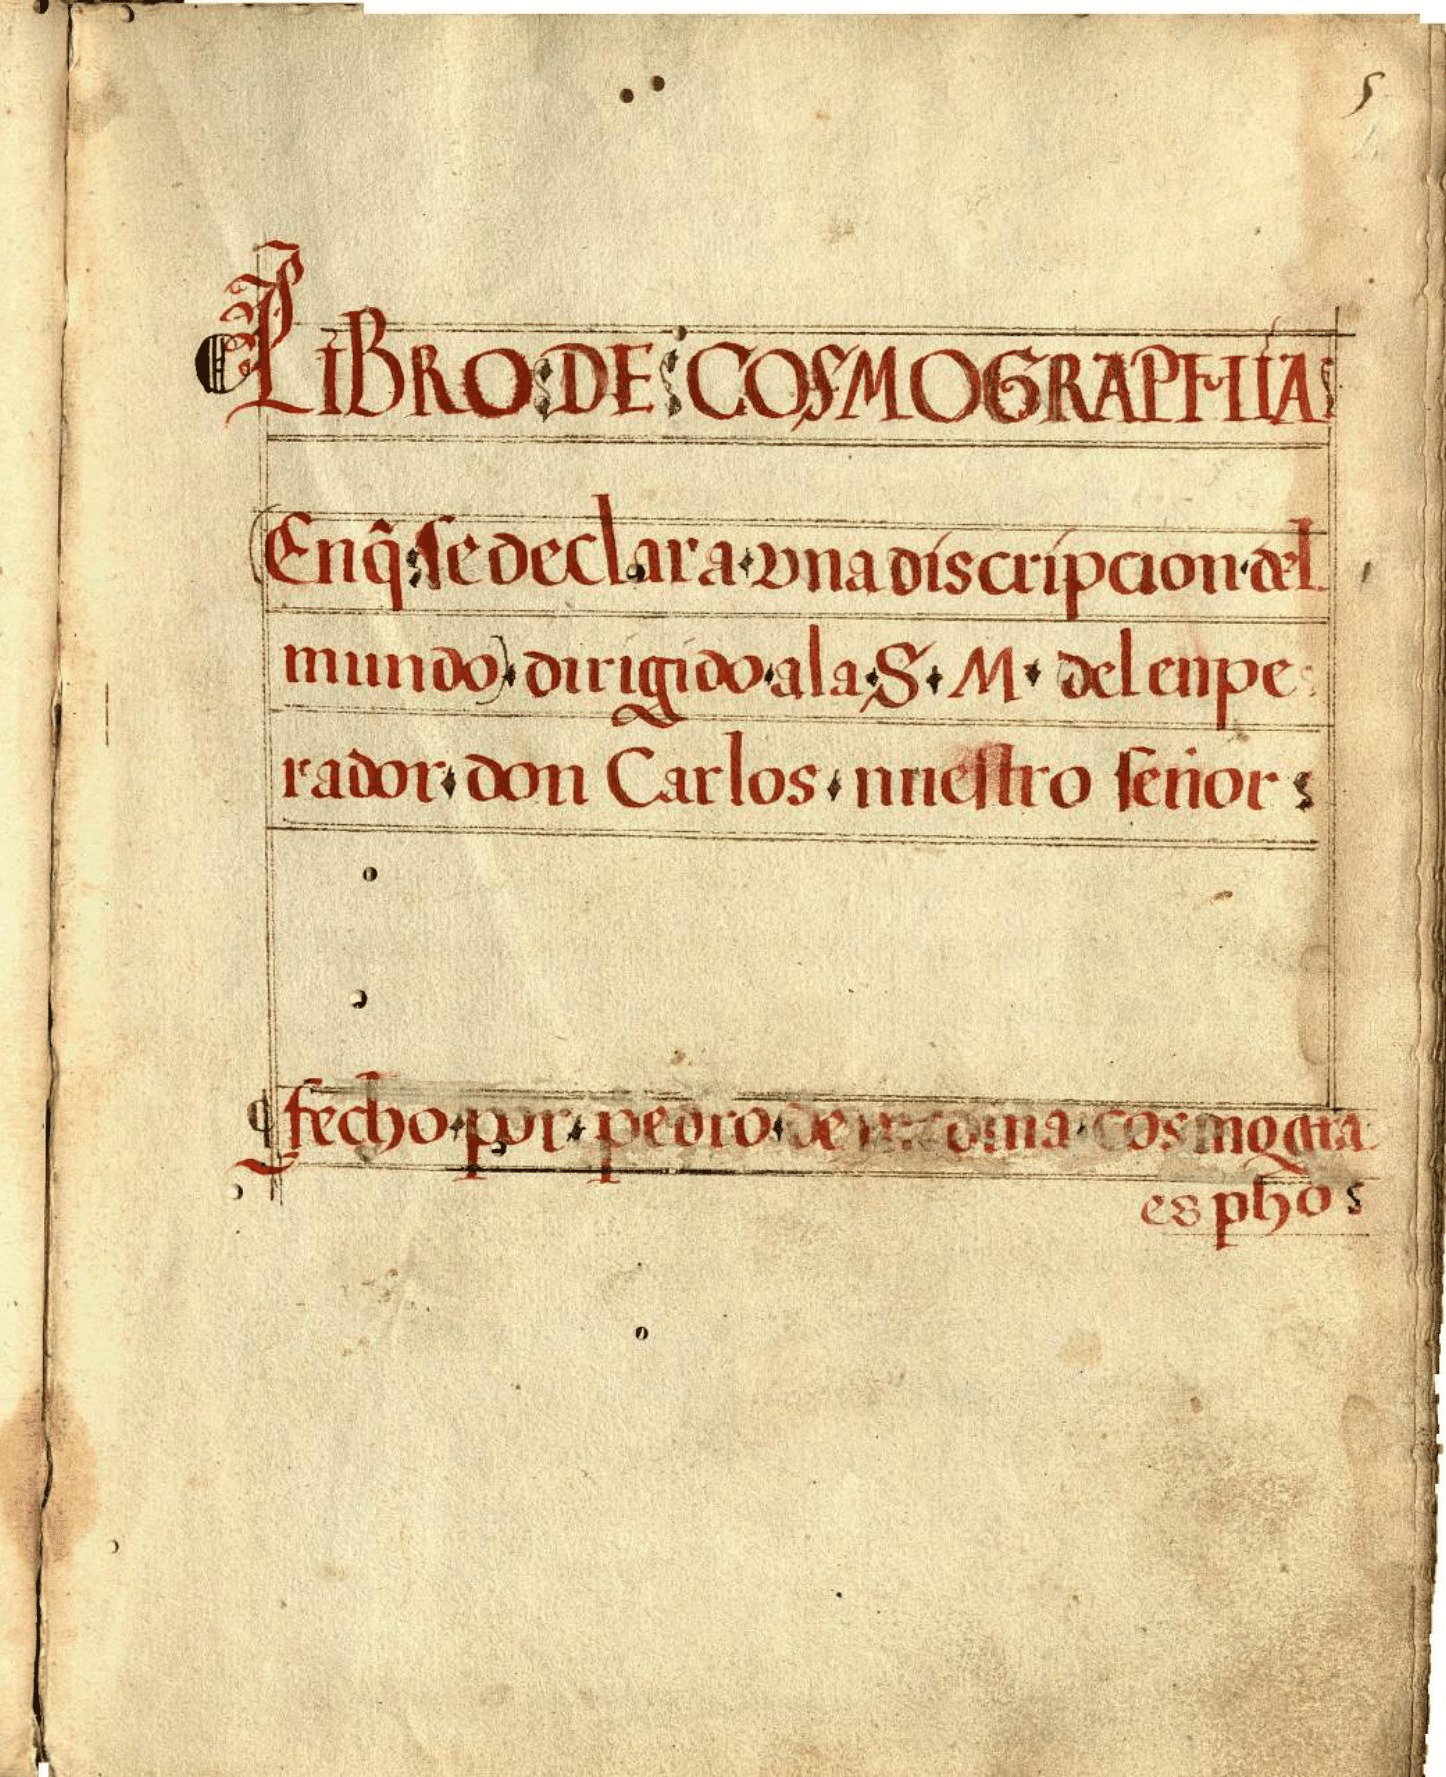 5
LIBRO:DE:COSMOGRAPHIA:
(En q̃ se declara vna discripcion del
mundo) dirigido a la S. M. del enpe
rador don Carlos nuestro señor
¶ fecho por pedro de medina cosmogra
pho